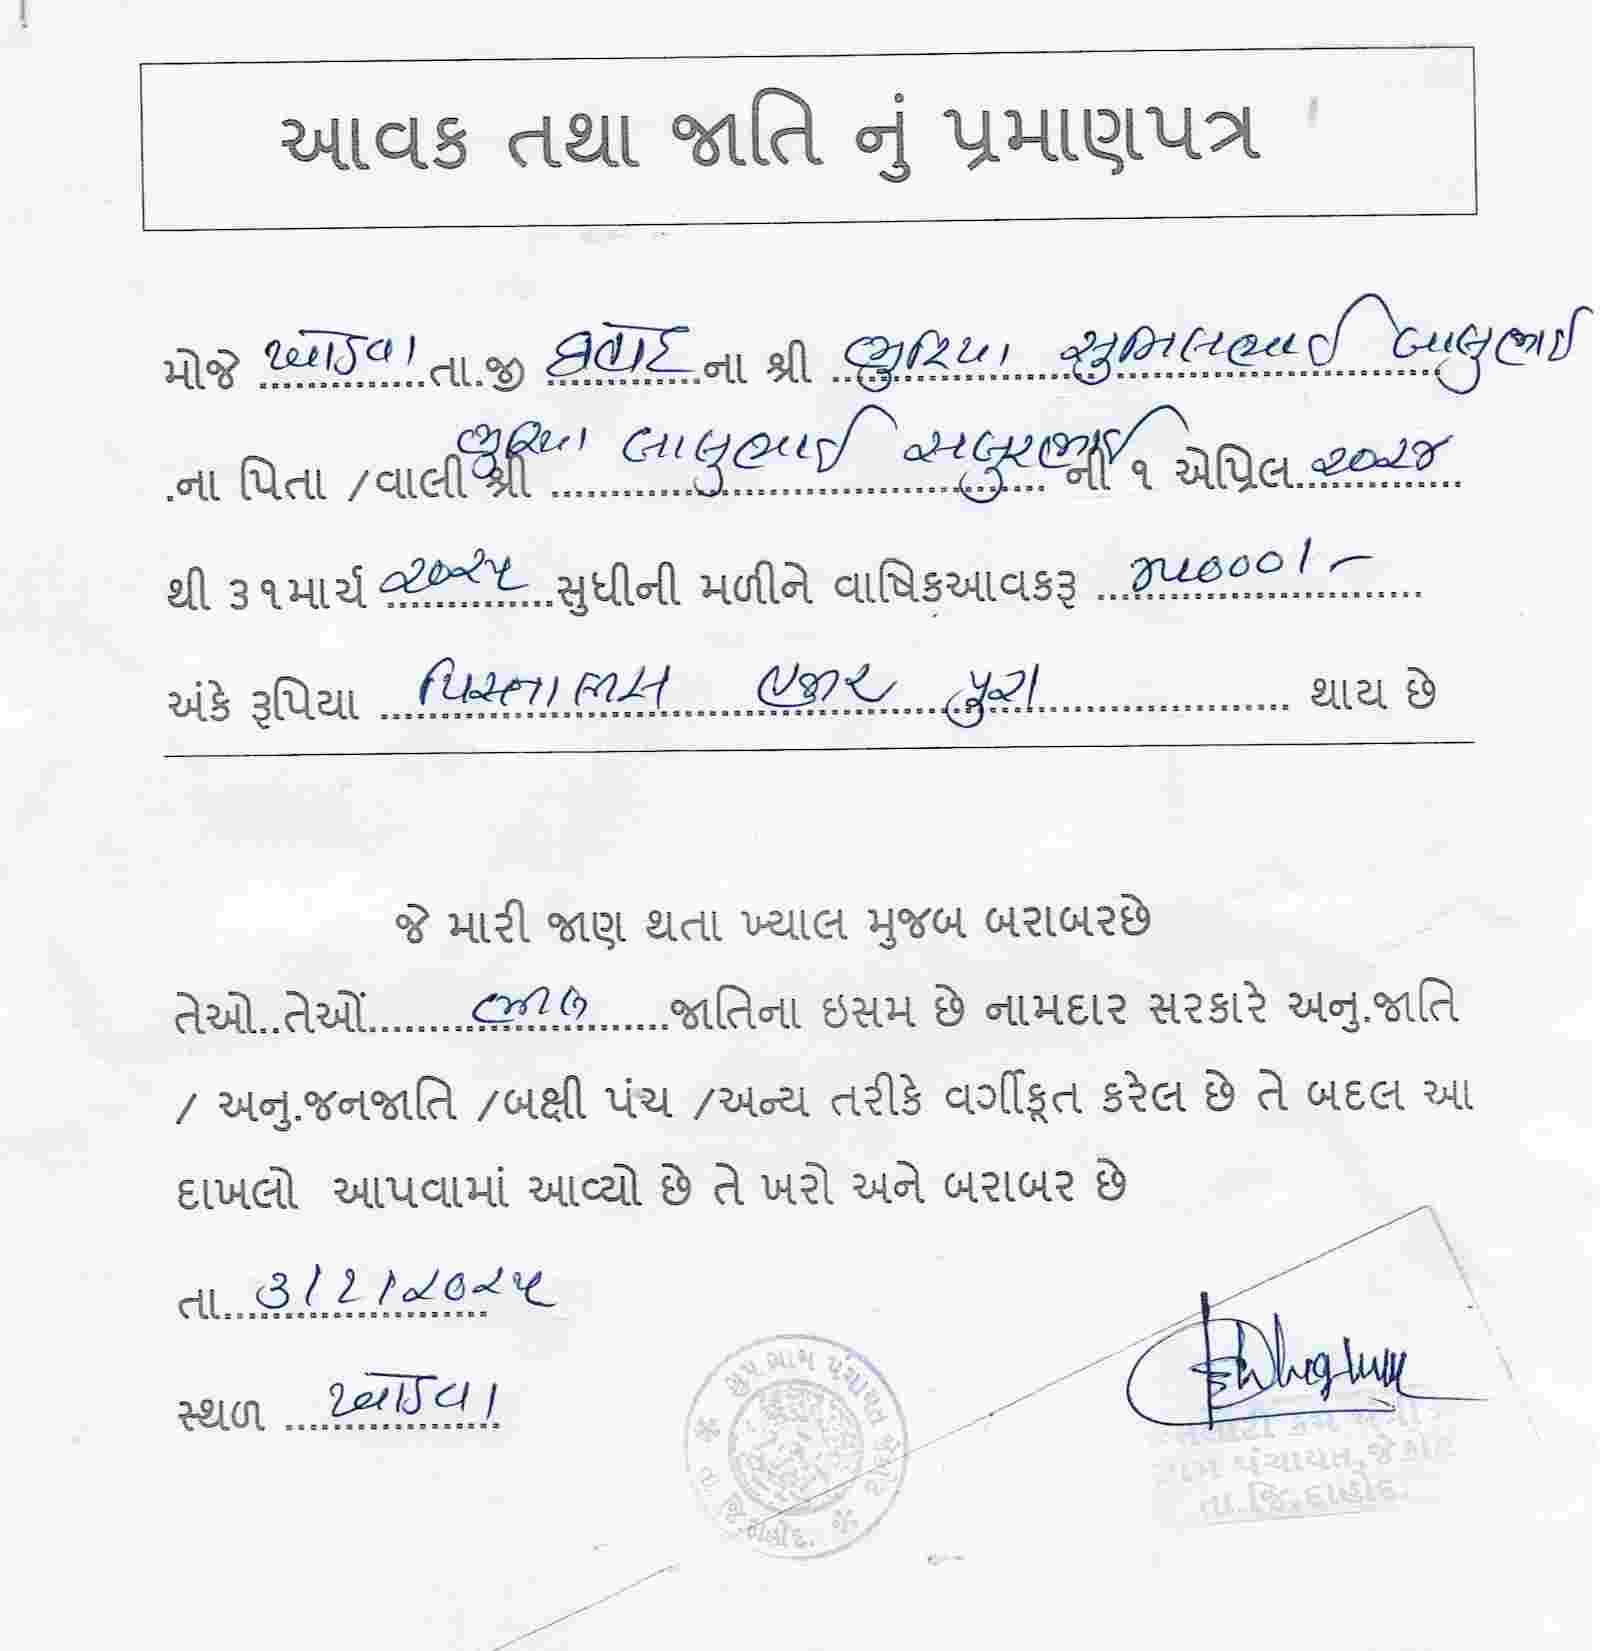 આવક તથા જાતિ નું પ્રમાણપત્ર
મોજે ............... તા.જી દાહોદ ના શ્રી ભુરિયા સુમિલભાઈ બાબુભાઈ
.ના પિતા /વાલી શ્રી ભુરિયા બાબુભાઈ સબુરભાઈ ની ૧ એપ્રિલ..૨૦૨૪
થી ૩૧માર્ચ ૨૦૨૫ સુધીની મળીને વાષિકઆવકરૂ ૪૫૦૦૦/-
અંકે રૂપિયા પિસ્તાળીસ હજાર પુરા થાય છે
જે મારી જાણ થતા ખ્યાલ મુજબ બરાબરછે
તેઓ..તેઓં ભીલ જાતિના ઇસમ છે નામદાર સરકારે અનુ.જાતિ
/ અનુ.જનજાતિ /બક્ષી પંચ /અન્ય તરીકે વર્ગીકૃત કરેલ છે તે બદલ આ
દાખલો આપવામાં આવ્યો છે તે ખરો અને બરાબર છે
તા...૩/૨/૨૦૨૫
સ્થળ
ગ્રામ પંચાયત
તલાટી કમ મંત્રી
ગ્રામ પંચાયત,જેકોટ
તા.જિ.દાહોદ.